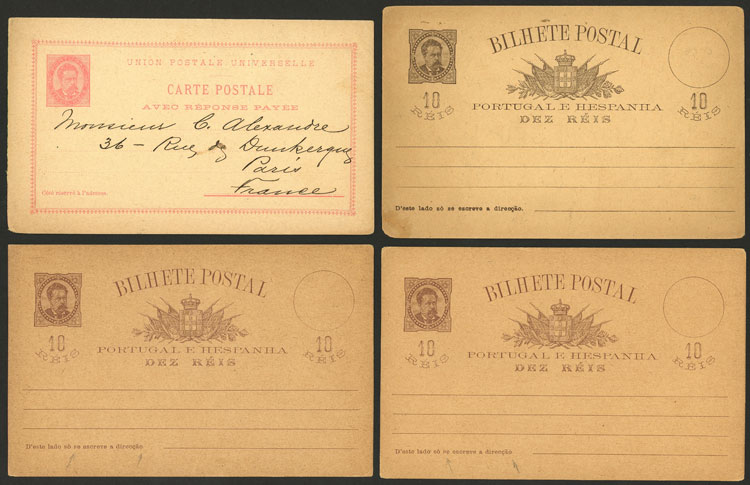 UNION POSTALE UNIVERSELLE
CARTE POSTALE
AVEC RÉPONSE PAYÉE
Monsieur C. Alexandre
36 - Rue de Dunkerque
Paris
France
Côté réservé à l'adresse.
BILHETE POSTAL
10 10
RÉIS RÉIS
PORTUGAL E HESPANHA
DEZ RÉIS
D'este lado só se escreve a direcção.
BILHETE POSTAL
10 10
RÉIS RÉIS
PORTUGAL E HESPANHA
DEZ RÉIS
D'este lado só se escreve a direcção.
BILHETE POSTAL
10 10
RÉIS RÉIS
PORTUGAL E HESPANHA
DEZ RÉIS
D'este lado só se escreve a direcção.